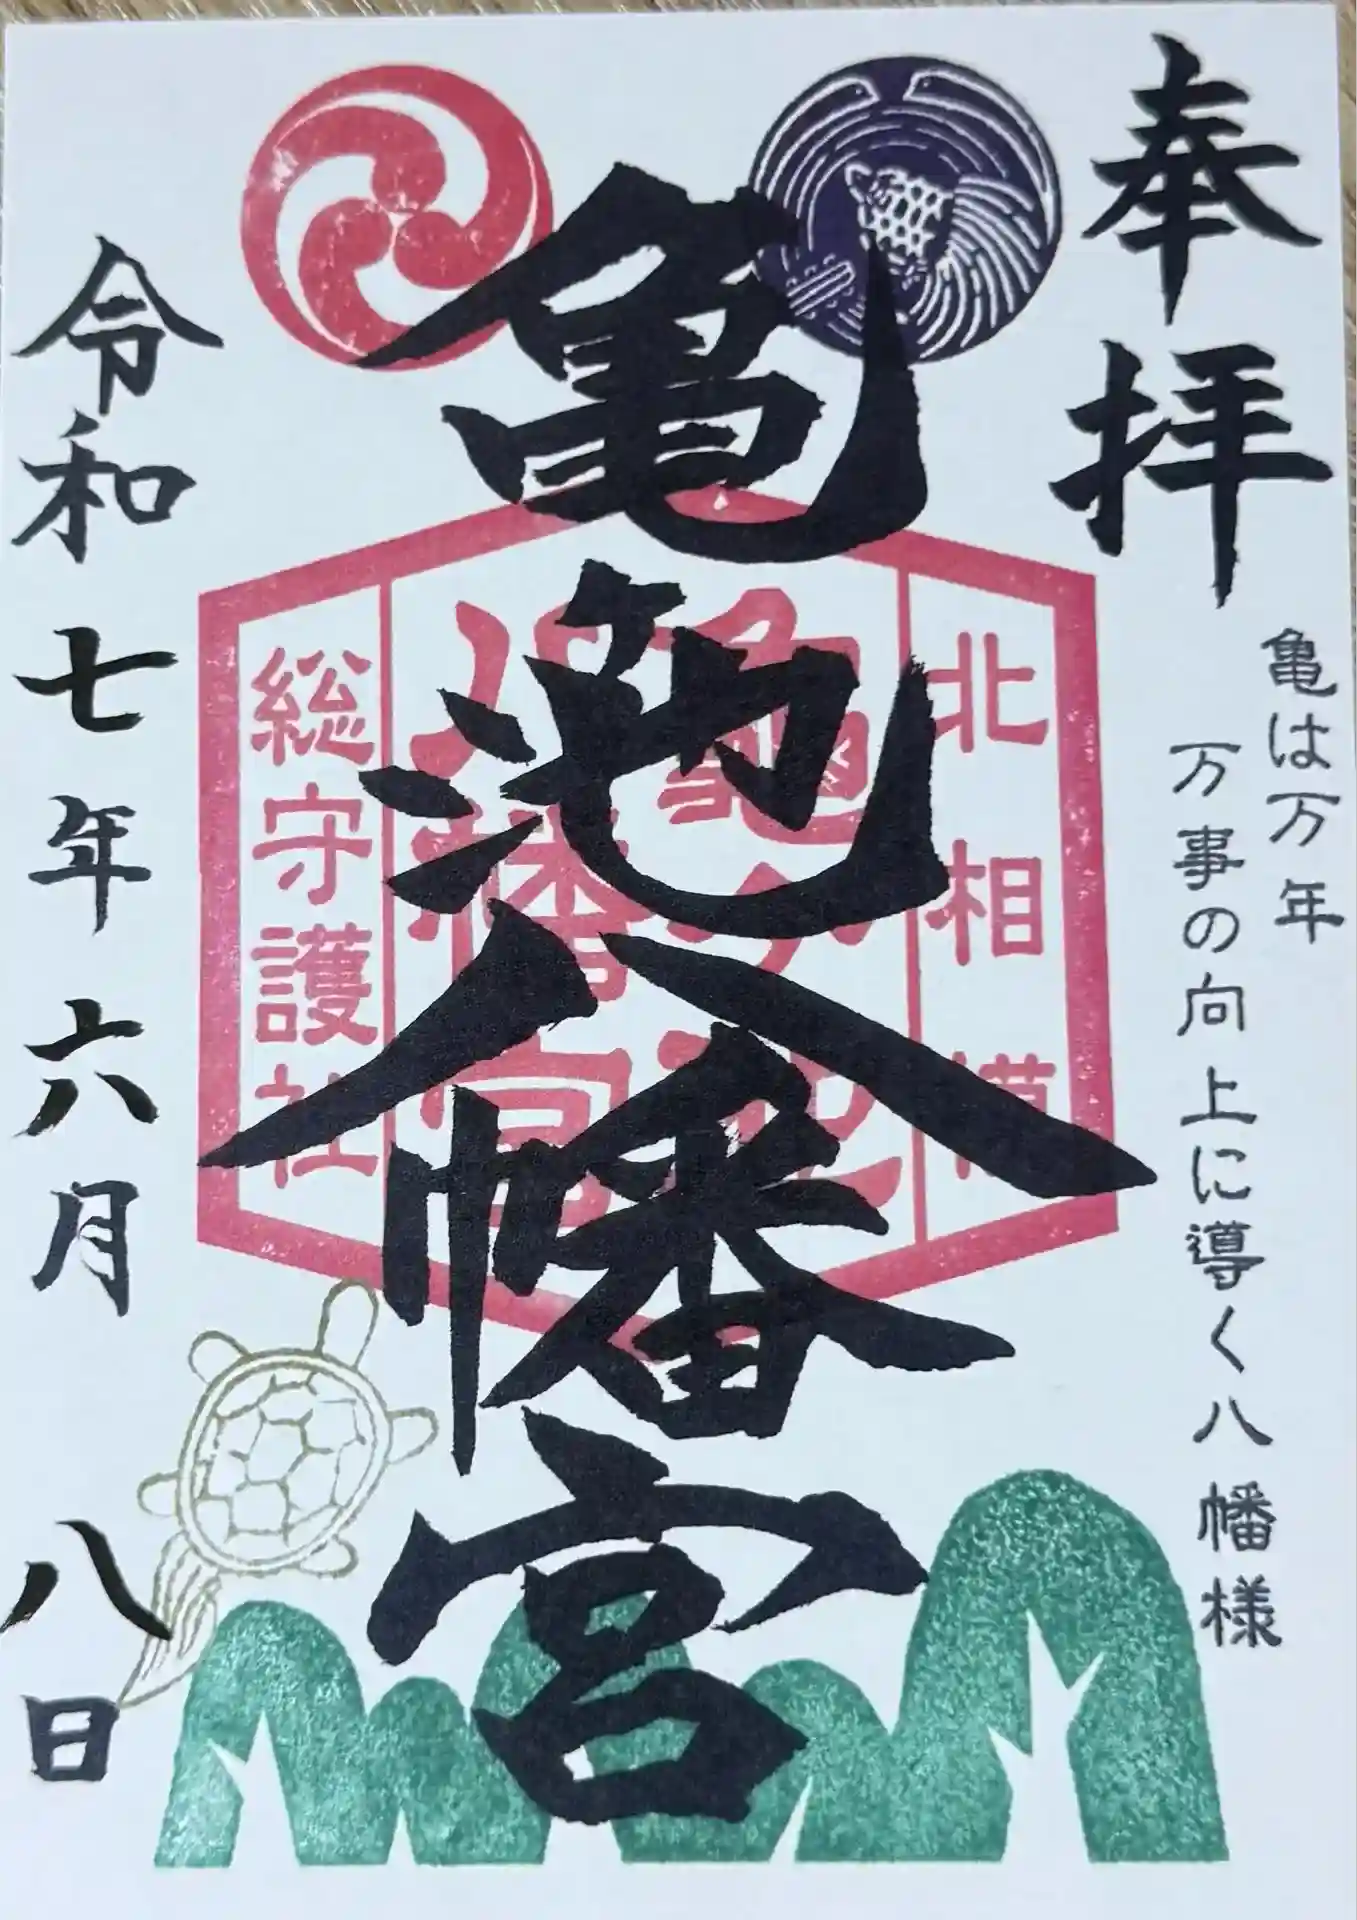 奉拝
亀は万年
万事の向上に導く八幡様
亀池八幡宮
北相模
亀ヶ池
八幡宮
総守護社
令和七年六月八日